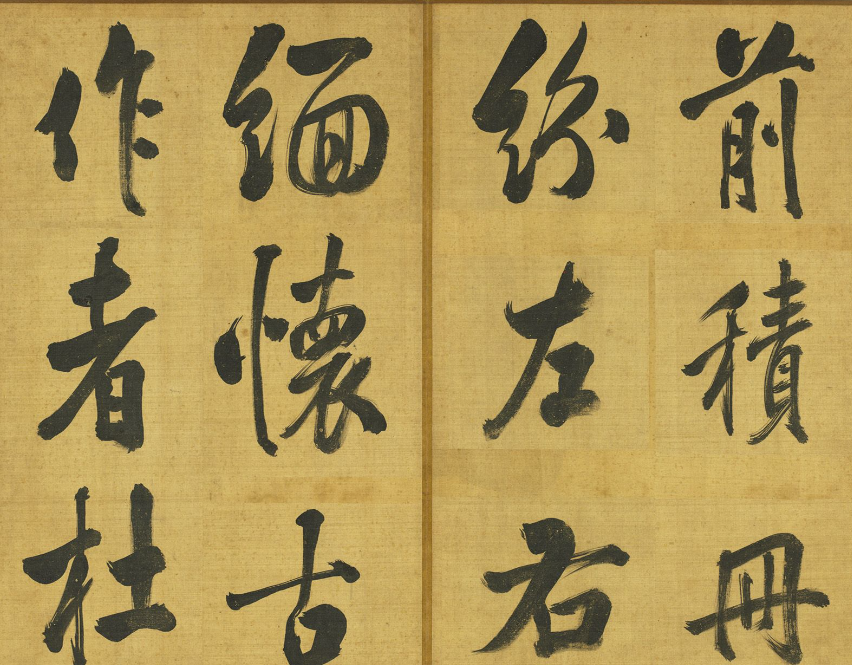 前積冊
紛左右
緬懷古
作者杜